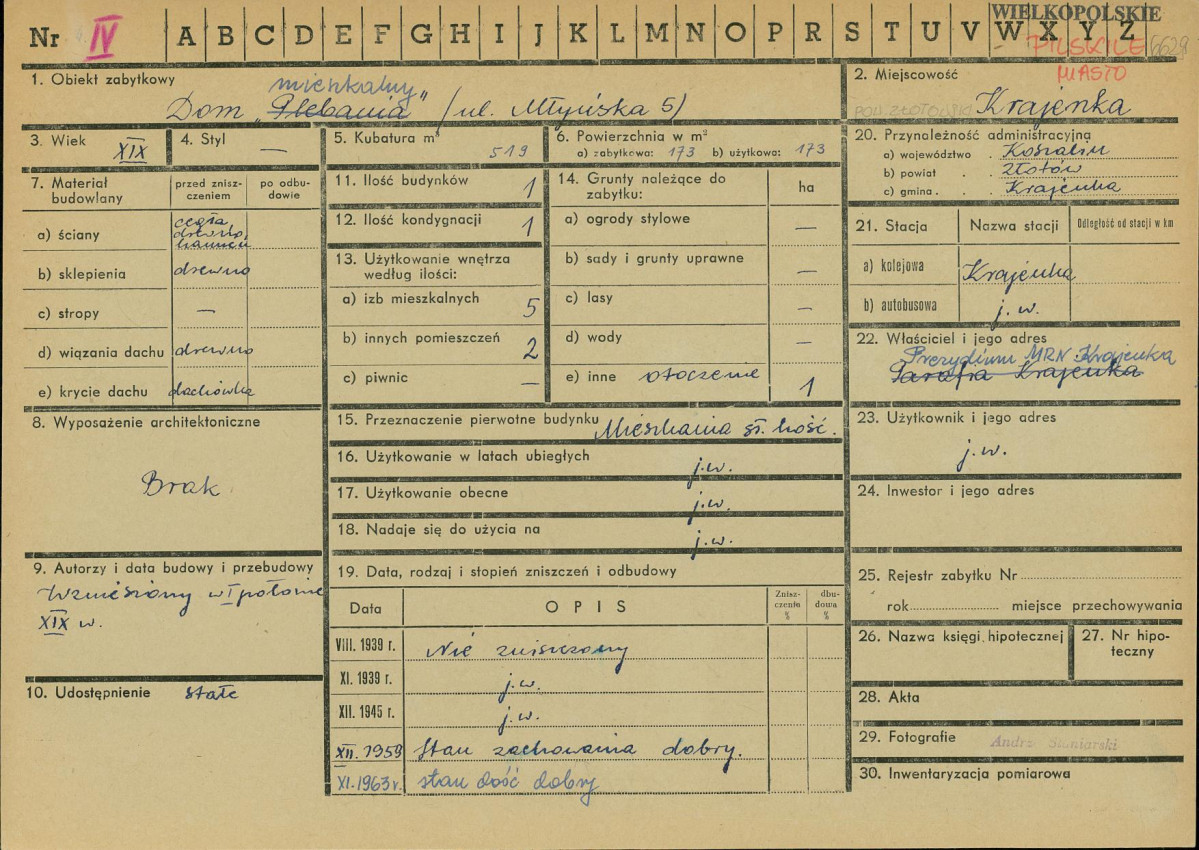 Nr IV A B C D E F G H I J K L M N O P R S T U V W X Y Z
WIELKOPOLSKIE
PILSKIE 6629
MIASTO
1. Obiekt zabytkowy
mieszkalny
Dom „Plebania" (ul. Młyńska 5)
2. Miejscowość
POW. ZŁOTOWSKI Krajenka
3. Wiek XIX
4. Styl —
5. Kubatura m³
519
6. Powierzchnia w m²
a) zabytkowa: 173 b) użytkowa: 173
20. Przynależność administracyjna
a) województwo . Koszalin
b) powiat . . Złotów
c) gmina . . Krajenka
7. Materiał budowlany
przed znisz-
czeniem
po odbu-
dowie
a) ściany cegła
drewno,
kamień
b) sklepienia drewno
c) stropy —
d) wiązania dachu drewno
e) krycie dachu dachówka
11. Ilość budynków 1
12. Ilość kondygnacji 1
13. Użytkowanie wnętrza
według ilości:
a) izb mieszkalnych 5
b) innych pomieszczeń 2
c) piwnic —
14. Grunty należące do
zabytku:
ha
a) ogrody stylowe —
b) sady i grunty uprawne —
c) lasy —
d) wody —
e) inne otoczenie 1
21. Stacja Nazwa stacji Odległość od stacji w km
a) kolejowa Krajenka
b) autobusowa j.w.
22. Właściciel i jego adres
Prezydium MRN Krajenka
Parafia Krajenka
8. Wyposażenie architektoniczne
Brak
15. Przeznaczenie pierwotne budynku Mieszkania sł. kość.
16. Użytkowanie w latach ubiegłych j.w.
17. Użytkowanie obecne j.w.
18. Nadaje się do użycia na j.w.
23. Użytkownik i jego adres
j.w.
24. Inwestor i jego adres
9. Autorzy i data budowy i przebudowy
Wzniesiony w I połowie
XIX w.
10. Udostępnienie stałe
19. Data, rodzaj i stopień zniszczeń i odbudowy
Data OPIS Znisz-
czenia
%
dbu-
dowa
%
VIII. 1939 r. Nie zniszczony
XI. 1939 r. j.w.
XII. 1945 r. j.w.
XII. 1959 Stan zachowania dobry.
XI. 1963 r. stan dość dobry
25. Rejestr zabytku Nr
rok miejsce przechowywania
26. Nazwa księgi hipotecznej
27. Nr hipo-
teczny
28. Akta
29. Fotografie
30. Inwentaryzacja pomiarowa